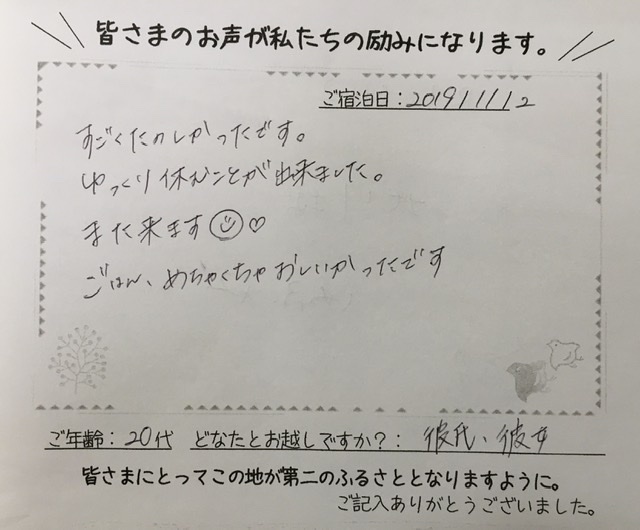 皆さまのお声が私たちの励みになります。
ご宿泊日：2019/11/12
すごくたのしかったです。
ゆっくり休むことが出来ました。
また来ます☺♡
ごはん、めちゃくちゃおいしいかったです
ご年齢：20代 どなたとお越しですか？： 彼氏、彼女
皆さまにとってこの地が第二のふるさととなりますように。
ご記入ありがとうございました。